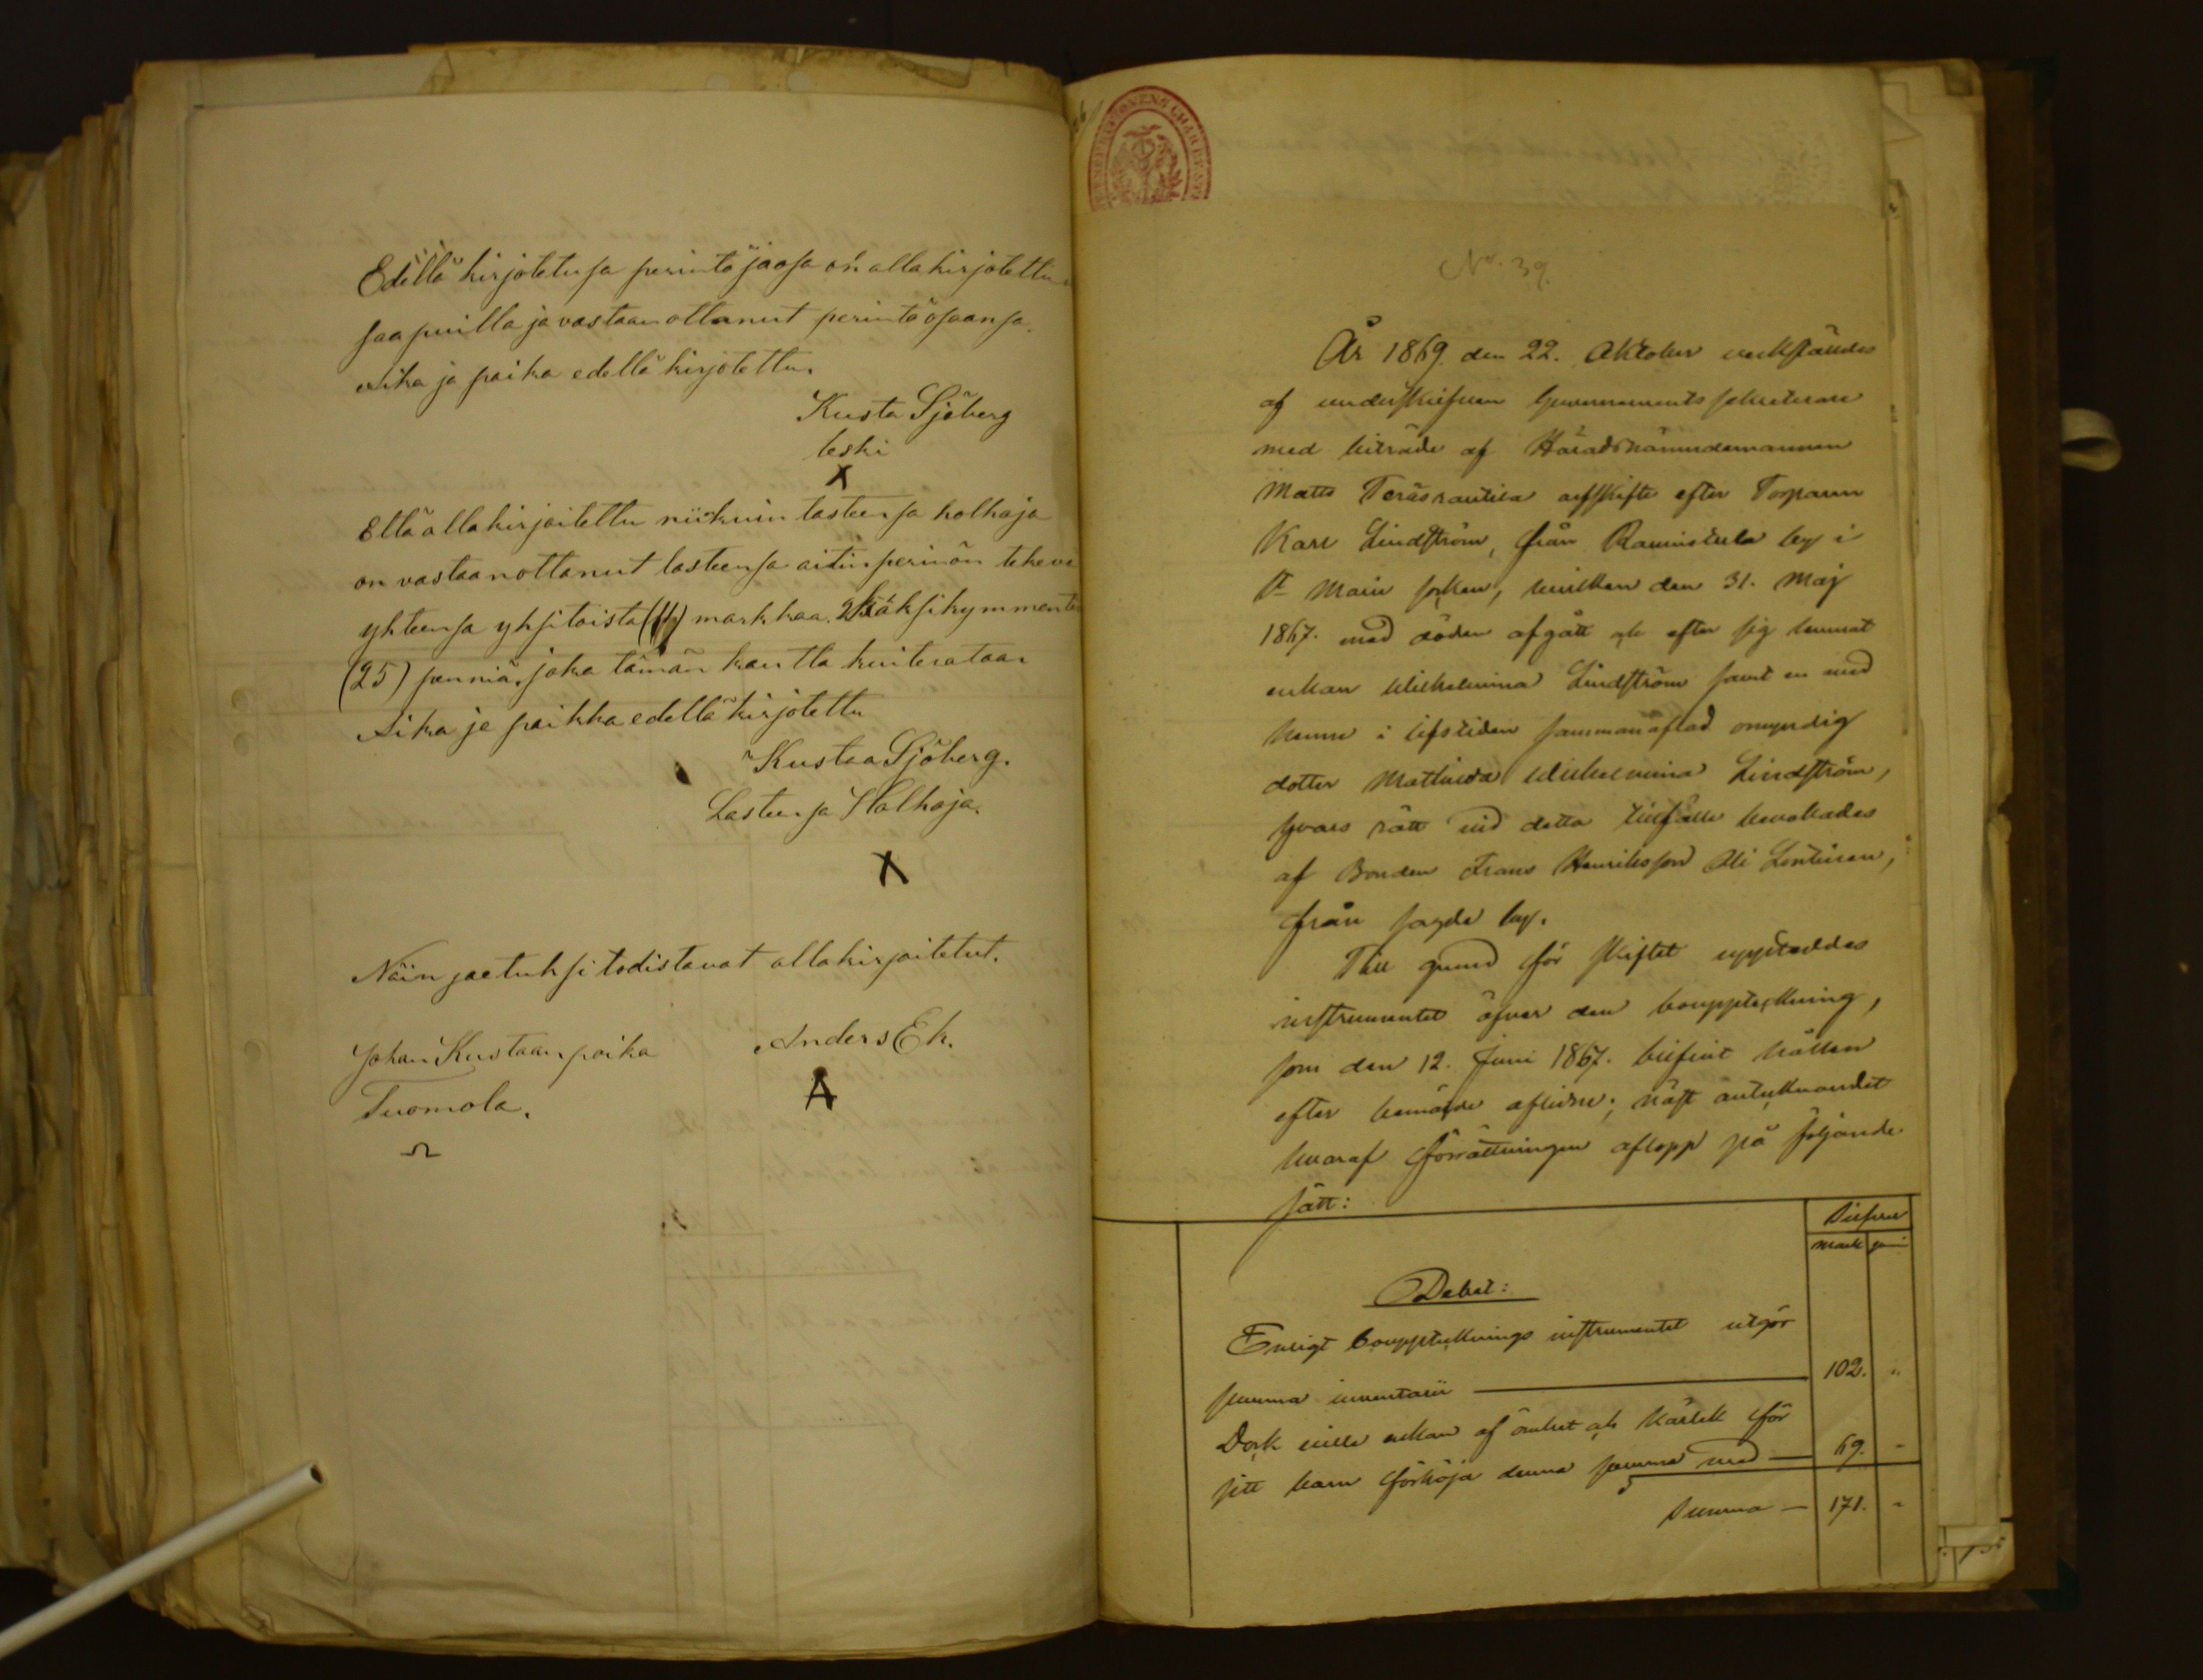 Edellä kirjotetusa perintö jaosa on allakirjotettu
saapuilla ja vastaanottanut perintöosansa.
Aika ja paika edellä kirjotettu.
Kusta Sjöberg
leski
X
Että allakirjoitettu niikuin lasteensa holhoja
on vastaanottanut lasteensa aitin perinön tekeva
yhteensä yksitoista (11) markkaa kaksikymmentä
(25) penniä, joka tämän kautta kuiterataan
Aika ja paikka edellä kirjotettu
Kustaa Sjöberg.
Lasteensa Holhoja.
X
Näin jaetuksi todistavat allakirjoitetut.
Johan Kustaan poika
Tuomola.
Anders Ek.
A
No. 39.
År 1869. den 22. Oktober verkställdes
af underskrifven Guvernements sekreterare
med biträde af Häradsnämndemannen
Matts Teräsrautila arfskifte efter Torparen
Karl Lindström, från by i
socken, hvilken den 31. Maj
1867. med döden afgått och efter sig lemnat
enkan Wilhelmina Lindström samt en med
henne i lifstiden sammanaflad omyndig
dotter Mathilda Wilhelmina Lindström,
hvars rätt vid detta tillfälle bevakades
af Bonden Frans Henriksson Ali
från sagde by.
Till grund för skiftet uppställdes
instrumentet öfver den bouppteckning,
som den 12. Juni 1867. blifvit hållen
efter bemälde aflidne; näst antecknandet
hvaraf förrättningen aflopp på följande
sätt:
Silfver
mark pi
Debet:
Enligt bouppteckningsinstrumentet utgör
summa inventarii — 102. "
Dock ville enkan af ömhet och kärlek för
sitt barn förhöja denna summa med — 69. "
Summa — 171. "